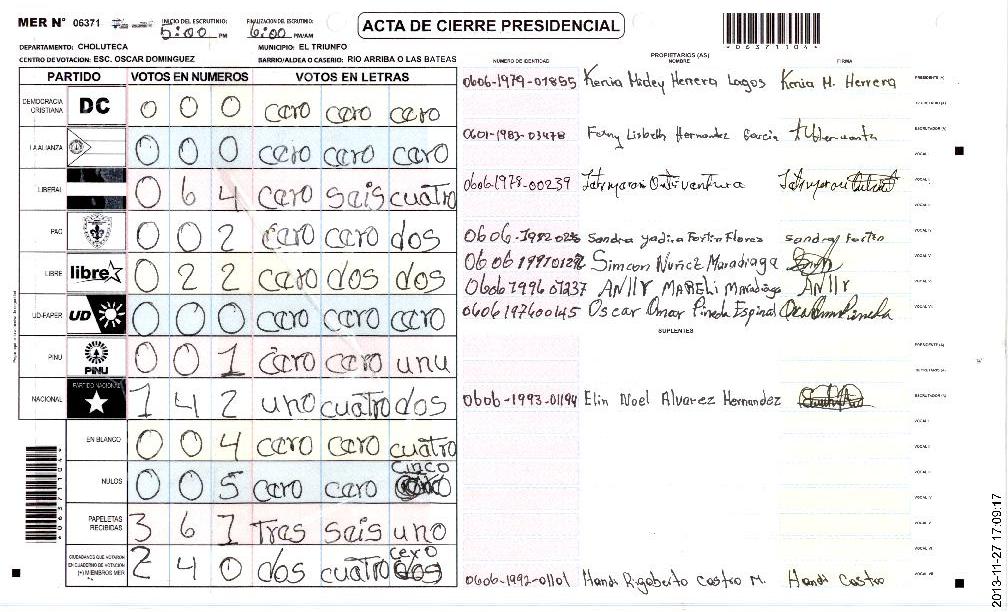 MER N° 06371 INICIO DEL ESCRUTINIO: 5:00 PM FINALIZACION DEL ESCRUTINIO: 6:00 PM/AM ACTA DE CIERRE PRESIDENCIAL
*063711044*
DEPARTAMENTO: CHOLUTECA MUNICIPIO: EL TRIUNFO
CENTRO DE VOTACION: ESC. OSCAR DOMINGUEZ BARRIO/ALDEA O CASERIO: RIO ARRIBA O LAS BATEAS
PROPIETARIOS (AS)
NUMERO DE IDENTIDAD NOMBRE FIRMA
PARTIDO VOTOS EN NUMEROS VOTOS EN LETRAS
0606-1979-01855 Kenia Midey Herrera Lagos Kenia M. Herrera PRESIDENTE (A)
DEMOCRACIA CRISTIANA DC 0 0 0 cero cero cero
SECRETARIO (A)
0601-1983-03478 Fany Lisbeth Hernandez Garcia ESCRUTADOR (A)
LA ALIANZA 0 0 0 cero cero cero
VOCAL I
LIBERAL 0 6 4 cero seis cuatro
0606-1978-00239 VOCAL II
VOCAL III
PAC 0 0 2 cero cero dos
Sandra Yadira Fortin Flores Sandra Fortin VOCAL IV
LIBRE libre 0 2 2 cero dos dos
Simeon Nuñez Maradiaga VOCAL V
ANllY MARELi Maradiaga ANllY VOCAL VI
UD-FAPER UD 0 0 0 cero cero cero
0606197600145 Oscar Omar Pineda Espinal VOCAL VII
SUPLENTES
PINU PiNU 0 0 1 cero cero unu
PRESIDENTE (A)
SECRETARIO (A)
NACIONAL PARTIDO NACIONAL 1 4 2 uno cuatro dos
0606-1993-01194 Elin Noel Alvarez Hernandez ESCRUTADOR (A)
VOCAL I
EN BLANCO 0 0 4 cero cero cuatro
VOCAL II
VOCAL III
NULOS 0 0 5 cero cero cinco
VOCAL IV
PAPELETAS RECIBIDAS 3 6 1 tres seis uno
VOCAL V
VOCAL VI
CIUDADANOS QUE VOTARON EN CUADERNO DE VOTACION (+) MIEMBROS MER 2 4 0 dos cuatro cero
0606-1992-01101 Handi Rigoberto Castro M. Handi Castro VOCAL VII
*063711044*
2013-11-27 17:09:17